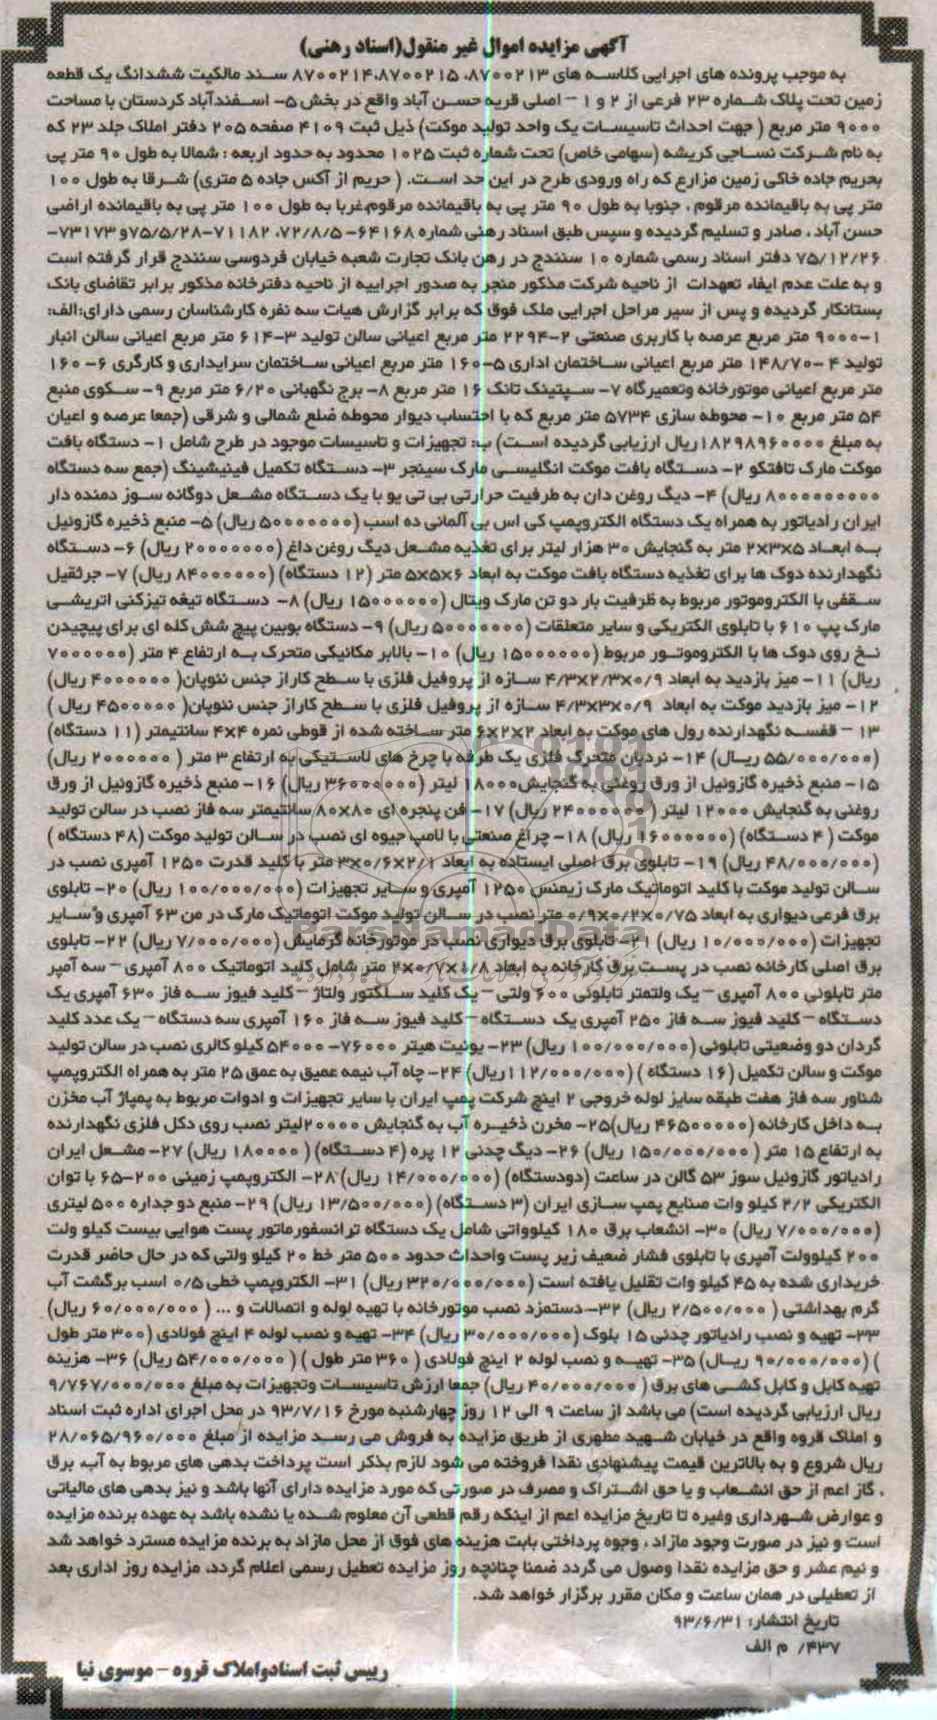 آگهی مزایده اموال غیر منقول(اسناد رهنی)
به موجب پرونده های اجرایی کلاسه های ۸۷۰۰۲۱۳، ۸۷۰۰۲۱۵، ۸۷۰۰۲۱۴ سند مالکیت ششدانگ یک قطعه
زمین تحت پلاک شماره ۲۳ فرعی از ۲ و ۱ – اصلی قریه حسن آباد واقع در بخش ۵- اسفندآباد کردستان با مساحت
۹۰۰۰ متر مربع ( جهت احداث تاسیسات یک واحد تولید موکت) ذیل ثبت ۴۱۰۹ صفحه ۲۰۵ دفتر املاک جلد ۲۳ که
به نام شرکت نساجی کریشه (سهامی خاص) تحت شماره ثبت ۱۰۲۵ محدود به حدود اربعه : شمالا به طول ۹۰ متر پی
بحریم جاده خاکی زمین مزارع که راه ورودی طرح در این حد است. ( حریم از آکس جاده ۵ متری) شرقا به طول ۱۰۰
متر پی به باقیمانده مرقوم . جنوبا به طول ۹۰ متر پی به باقیمانده مرقوم.غربا به طول ۱۰۰ متر پی به باقیمانده اراضی
حسن آباد . صادر و تسلیم گردیده و سپس طبق اسناد رهنی شماره ۶۴۱۶۸- ۷۲/۸/۵، ۷۱۱۸۲-۷۵/۵/۲۸و ۷۳۱۷۳-
۷۵/۱۲/۲۶ دفتر اسناد رسمی شماره ۱۰ سنندج در رهن بانک تجارت شعبه خیابان فردوسی سنندج قرار گرفته است
و به علت عدم ایفاء تعهدات از ناحیه شرکت مذکور منجر به صدور اجراییه از ناحیه دفترخانه مذکور برابر تقاضای بانک
بستانکار گردیده و پس از سیر مراحل اجرایی ملک فوق که برابر گزارش هیات سه نفره کارشناسان رسمی دارای:الف:
۱-۹۰۰۰ متر مربع عرصه با کاربری صنعتی ۲-۲۲۹۴ متر مربع اعیانی سالن تولید ۳-۶۱۴ متر مربع اعیانی سالن انبار
تولید ۴ -۱۴۸/۷۰ متر مربع اعیانی ساختمان اداری ۵-۱۶۰ متر مربع اعیانی ساختمان سرایداری و کارگری ۶- ۱۶۰
متر مربع اعیانی موتورخانه وتعمیرگاه ۷- سپتینک تانک ۱۶ متر مربع ۸- برج نگهبانی ۶/۲۰ متر مربع ۹- سکوی منبع
۵۴ متر مربع ۱۰- محوطه سازی ۵۷۳۴ متر مربع که با احتساب دیوار محوطه ضلع شمالی و شرقی (جمعا عرصه و اعیان
به مبلغ ۱۸۲۹۸۹۶۰۰۰۰ریال ارزیابی گردیده است) ب: تجهیزات و تاسیسات موجود در طرح شامل ۱- دستگاه بافت
موکت مارک تافتکو ۲- دستگاه بافت موکت انگلیسی مارک سینجر ۳- دستگاه تکمیل فینیشینگ (جمع سه دستگاه
۸۰۰۰۰۰۰۰۰۰ ریال) ۴- دیگ روغن دان به ظرفیت حرارتی بی تی یو با یک دستگاه مشعل دوگانه سوز دمنده دار
ایران رادیاتور به همراه یک دستگاه الکتروپمپ کی اس بی آلمانی ده اسب (۵۰۰۰۰۰۰۰ ریال) ۵- منبع ذخیره گازوئیل
به ابعاد ۵×۳×۲ متر به گنجایش ۳۰ هزار لیتر برای تغذیه مشعل دیگ روغن داغ (۲۰۰۰۰۰۰۰ ریال) ۶- دستگاه
نگهدارنده دوک ها برای تغذیه دستگاه بافت موکت به ابعاد ۶×۵×۵ متر (۱۲ دستگاه) (۸۴۰۰۰۰۰۰ ریال) ۷- جرثقیل
سقفی با الکتروموتور مربوط به ظرفیت بار دو تن مارک ویتال (۱۵۰۰۰۰۰۰ ریال) ۸- دستگاه تیغه تیزکنی اتریشی
مارک پپ ۶۱۰ با تابلوی الکتریکی و سایر متعلقات (۵۰۰۰۰۰۰۰ ریال) ۹- دستگاه بوبین پیچ شش کله ای برای پیچیدن
نخ روی دوک ها با الکتروموتور مربوط (۱۵۰۰۰۰۰۰ ریال) ۱۰- بالابر مکانیکی متحرک به ارتفاع ۴ متر (۷۰۰۰۰۰۰
ریال) ۱۱- میز بازدید به ابعاد ۰/۹×۲/۳×۴/۳ سازه از پروفیل فلزی با سطح کاراز جنس نئوپان( ۴۰۰۰۰۰۰ ریال)
۱۲- میز بازدید موکت به ابعاد ۰/۹×۳×۴/۳ سازه از پروفیل فلزی با سطح کاراز جنس نئوپان( ۴۵۰۰۰۰۰ ریال )
۱۳ – قفسه نگهدارنده رول های موکت به ابعاد ۲×۲×۶ متر ساخته شده از قوطی نمره ۴×۴ سانتیمتر (۱۱ دستگاه)
(۵۵/۰۰۰/۰۰۰ ریال) ۱۴- نردبان متحرک فلزی یک طرفه با چرخ های لاستیکی به ارتفاع ۳ متر ( ۲۰۰۰۰۰۰ ریال)
۱۵- منبع ذخیره گازوئیل از ورق روغنی به گنجایش۱۸۰۰۰ لیتر (۳۶۰۰۰۰۰۰ ریال) ۱۶- منبع ذخیره گازوئیل از ورق
روغنی به گنجایش ۱۲۰۰۰ لیتر (۲۴۰۰۰۰۰۰ ریال) ۱۷- فن پنجره ای ۸۰×۸۰ سانتیمتر سه فاز نصب در سالن تولید
موکت ( ۴ دستگاه) (۱۶۰۰۰۰۰۰ ریال) ۱۸- چراغ صنعتی با لامپ جیوه ای نصب در سالن تولید موکت (۴۸ دستگاه )
(۴۸/۰۰۰/۰۰۰ ریال) ۱۹- تابلوی برق اصلی ایستاده به ابعاد ۲/۱×۰/۶×۳ متر با کلید قدرت ۱۲۵۰ آمپری نصب در
سالن تولید موکت با کلید اتوماتیک مارک زیمنس ۱۲۵۰ آمپری و سایر تجهیزات (۱۰۰/۰۰۰/۰۰۰ ریال) ۲۰- تابلوی
برق فرعی دیواری به ابعاد ۰/۷۵×۰/۲×۰/۹ متر نصب در سالن تولید موکت اتوماتیک مارک در من ۶۳ آمپری و سایر
تجهیزات (۱۰/۰۰۰/۰۰۰ ریال) ۲۱- تابلوی برق دیواری نصب در موتورخانه گرمایش (۷/۰۰۰/۰۰۰ ریال) ۲۲- تابلوی
برق اصلی کارخانه نصب در پست برق کارخانه به ابعاد ۱/۸×۰/۷×۲ متر شامل کلید اتوماتیک ۸۰۰ آمپری – سه آمپر
متر تابلوئی ۸۰۰ آمپری – یک ولتمتر تابلوئی ۶۰۰ ولتی – یک کلید سلکتور ولتاژ – کلید فیوز سه فاز ۶۳۰ آمپری یک
دستگاه – کلید فیوز سه فاز ۲۵۰ آمپری یک دستگاه – کلید فیوز سه فاز ۱۶۰ آمپری سه دستگاه – یک عدد کلید
گردان دو وضعیتی تابلوئی (۱۰۰/۰۰۰/۰۰۰ ریال) ۲۳- یونیت هیتر ۷۶۰۰۰- ۵۴۰۰۰ کیلو کالری نصب در سالن تولید
موکت و سالن تکمیل (۱۶ دستگاه ) (۱۱۲/۰۰۰/۰۰۰ریال) ۲۴- چاه آب نیمه عمیق به عمق ۲۵ متر به همراه الکتروپمپ
شناور سه فاز هفت طبقه سایز لوله خروجی ۲ اینچ شرکت پمپ ایران با سایر تجهیزات و ادوات مربوط به پمپاژ آب مخزن
به داخل کارخانه (۴۶۵۰۰۰۰۰ ریال)۲۵- مخزن ذخیره آب به گنجایش ۲۰۰۰۰لیتر نصب روی دکل فلزی نگهدارنده
به ارتفاع ۱۵ متر ( ۱۵۰/۰۰۰/۰۰۰ ریال) ۲۶- دیگ چدنی ۱۲ پره (۴ دستگاه) ( ۱۸۰۰۰۰ ریال) ۲۷- مشعل ایران
رادیاتور گازوئیل سوز ۵۳ گالن در ساعت (دودستگاه) (۱۴/۰۰۰/۰۰۰ ریال) ۲۸- الکتروپمپ زمینی ۲۰۰-۶۵ با توان
الکتریکی ۲/۲ کیلو وات صنایع پمپ سازی ایران (۳ دستگاه) (۱۳/۵۰۰/۰۰۰ ریال) ۲۹- منبع دو جداره ۵۰۰ لیتری
(۷/۰۰۰/۰۰۰ ریال) ۳۰- انشعاب برق ۱۸۰ کیلوواتی شامل یک دستگاه ترانسفورماتور پست هوایی بیست کیلو ولت
۲۰۰ کیلوولت آمپری با تابلوی فشار ضعیف زیر پست واحداث حدود ۵۰۰ متر خط ۲۰ کیلو ولتی که در حال حاضر قدرت
خریداری شده به ۴۵ کیلو وات تقلیل یافته است (۳۲۰/۰۰۰/۰۰۰ ریال) ۳۱- الکتروپمپ خطی ۰/۵ اسب برگشت آب
گرم بهداشتی ( ۲/۵۰۰/۰۰۰ ریال) ۳۲-دستمزد نصب موتورخانه با تهیه لوله و اتصالات و ... ( ۶۰/۰۰۰/۰۰۰ ریال)
۳۳- تهیه و نصب رادیاتور چدنی ۱۵ بلوک (۳۰/۰۰۰/۰۰۰ ریال) ۳۴- تهیه و نصب لوله ۴ اینچ فولادی (۳۰۰ متر طول
) (۹۰/۰۰۰/۰۰۰ ریال) ۳۵- تهیه و نصب لوله ۲ اینچ فولادی ( ۳۶۰ متر طول ) ( ۵۴/۰۰۰/۰۰۰ ریال) ۳۶- هزینه
تهیه کابل و کابل کشی های برق ( ۴۰/۰۰۰/۰۰۰ ریال) جمعا ارزش تاسیسات وتجهیزات به مبلغ ۹/۷۶۷/۰۰۰/۰۰۰
ریال ارزیابی گردیده است) می باشد از ساعت ۹ الی ۱۲ روز چهارشنبه مورخ ۹۳/۷/۱۶ در محل اجرای اداره ثبت اسناد
و املاک قروه واقع در خیابان شهید مطهری از طریق مزایده به فروش می رسد مزایده از مبلغ ۲۸/۰۶۵/۹۶۰/۰۰۰
ریال شروع و به بالاترین قیمت پیشنهادی نقدا فروخته می شود لازم بذکر است پرداخت بدهی های مربوط به آب، برق
، گاز اعم از حق انشعاب و یا حق اشتراک و مصرف در صورتی که مورد مزایده دارای آنها باشد و نیز بدهی های مالیاتی
و عوارض شهرداری وغیره تا تاریخ مزایده اعم از اینکه رقم قطعی آن معلوم شده یا نشده باشد به عهده برنده مزایده
است و نیز در صورت وجود مازاد ، وجوه پرداختی بابت هزینه های فوق از محل مازاد به برنده مزایده مسترد خواهد شد
و نیم عشر و حق مزایده نقدا وصول می گردد ضمنا چنانچه روز مزایده تعطیل رسمی اعلام گردد، مزایده روز اداری بعد
از تعطیلی در همان ساعت و مکان مقرر برگزار خواهد شد.
تاریخ انتشار: ۹۳/۶/۳۱
۴۳۷/ م الف
رییس ثبت اسنادواملاک قروه – موسوی نیا
ParsNamadData